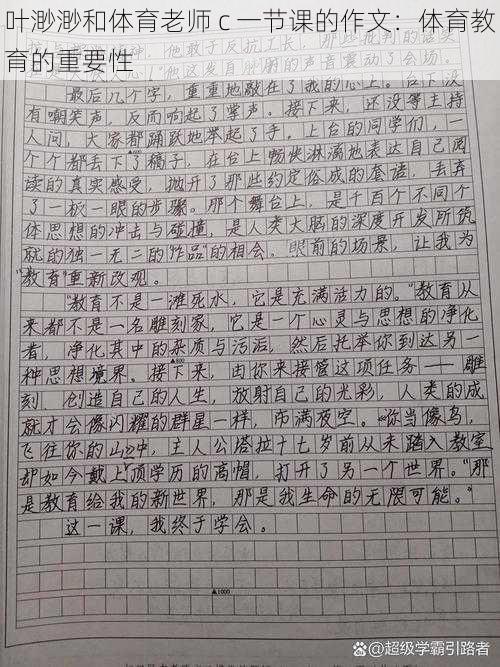 叶渺渺和体育老师 c 一节课的作文：体育教
育的重要性
最后几个字，重重地敲在了我的心上。台下没
有嘲笑声，反而响起了掌声。接下来，还没等主持
人问，大家都踊跃地举起了手，上台的同学们，一
个个都丢下了稿子，在台上畅快淋漓地表达自己阅
读的真实感受，抛开了那些约定俗成的套话，丢弃
了一板一眼的步骤。那个舞台上，是千百个不同个
体思想的冲击与碰撞，是人类大脑的深度开发所筑
就的独一无二的“作品”的相会。眼前的场景，让我为
“教育”重新改观。
“教育不是一滩死水，它是充满活力的。”教育从
来都不是一名雕刻家，它是一个心灵与思想的净化
者，净化其中的杂质与污垢，然后托举你到达另一
种思想境界。接下来，由你来接管这项任务——雕
刻、创造自己的人生，放射自己的光彩，人类的成
就才会像闪耀的群星一样，布满夜空。《你当像鸟，
飞往你的山》中，主人公塔拉十七岁前从未踏入教室
却如今戴上顶学历的高帽，打开了另一个世界。“那
是教育给我的新世界，那是我生命的无限可能。”
这一课，我终于学会。
▲800
▲1000
@超级学霸引路者